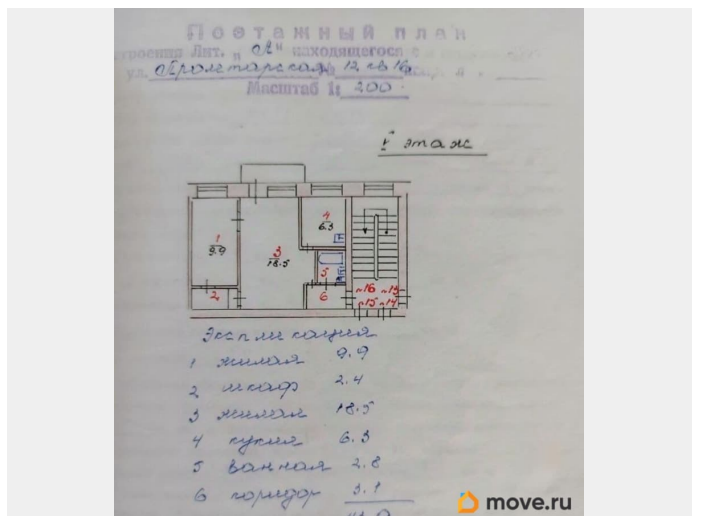 Поэтажный план
строения Лит. "А" находящегося в
ул. Пролетарская 12 кв 16
Масштаб 1: 200
I этаж
4
6.3
1
9.9
3
18.5
5
2
6
~16 ~13
~15 ~14
Экспликация
1 жилая 9.9
2 шкаф 2.4
3 жилая 18.5
4 кухня 6.3
5 ванная 2.8
6 коридор 3.1
move.ru